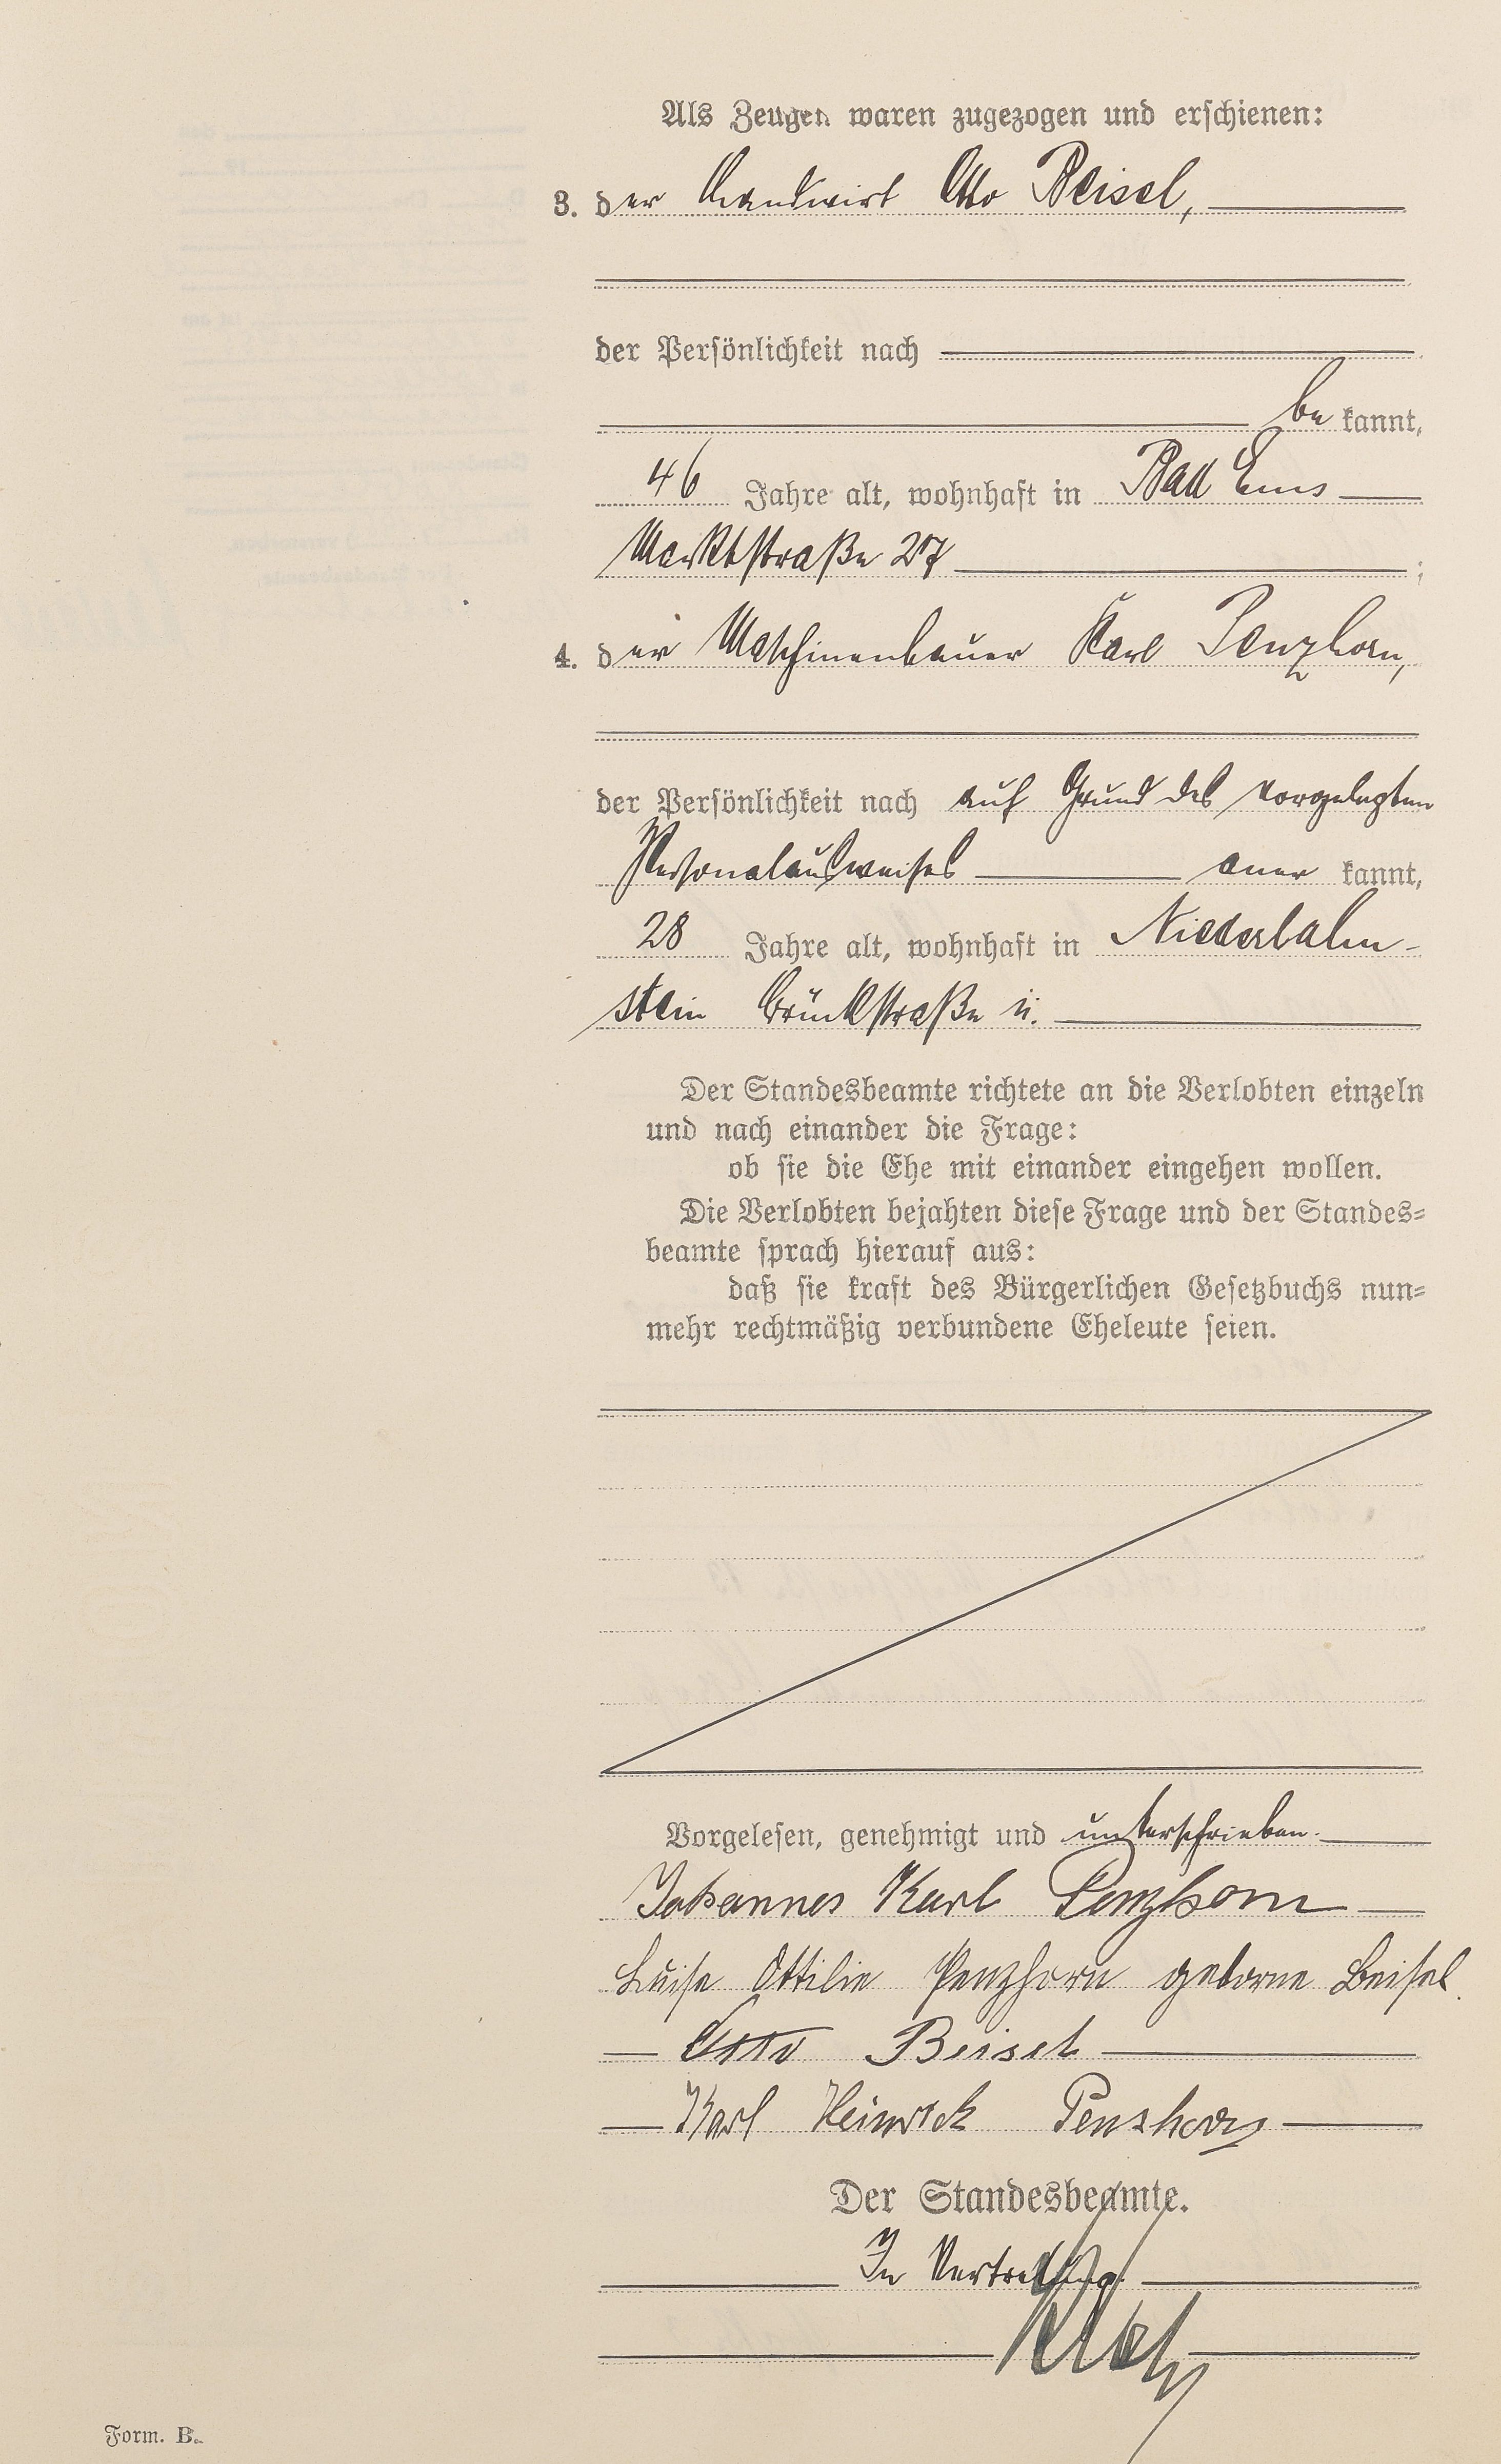 Als Zeugen waren zugezogen und erschienen:
3. der Landwirt Otto Beisel,
der Persönlichkeit nach
be kannt,
46 Jahre alt, wohnhaft in Bad Ems
Marktstraße 27 ;
4. der Maschinenbauer Karl Penzhorn,
der Persönlichkeit nach auf Grund des vorgelegten
Personalausweises aner kannt,
28 Jahre alt, wohnhaft in Niederlahn-
stein Brückstraße
Der Standesbeamte richtete an die Verlobten einzeln
und nach einander die Frage:
ob sie die Ehe mit einander eingehen wollen.
Die Verlobten bejahten diese Frage und der Standes=
beamte sprach hierauf aus:
daß sie kraft des Bürgerlichen Gesetzbuchs nun=
mehr rechtmäßig verbundene Eheleute seien.
Vorgelesen, genehmigt und unterschrieben.
Johannes Karl Penzhorn
Luise Ottilie Penzhorn geborne Beisel.
Otto Beisel
Karl Heinrich Penzhorn
Der Standesbeamte.
In Vertretung.
Form. B.